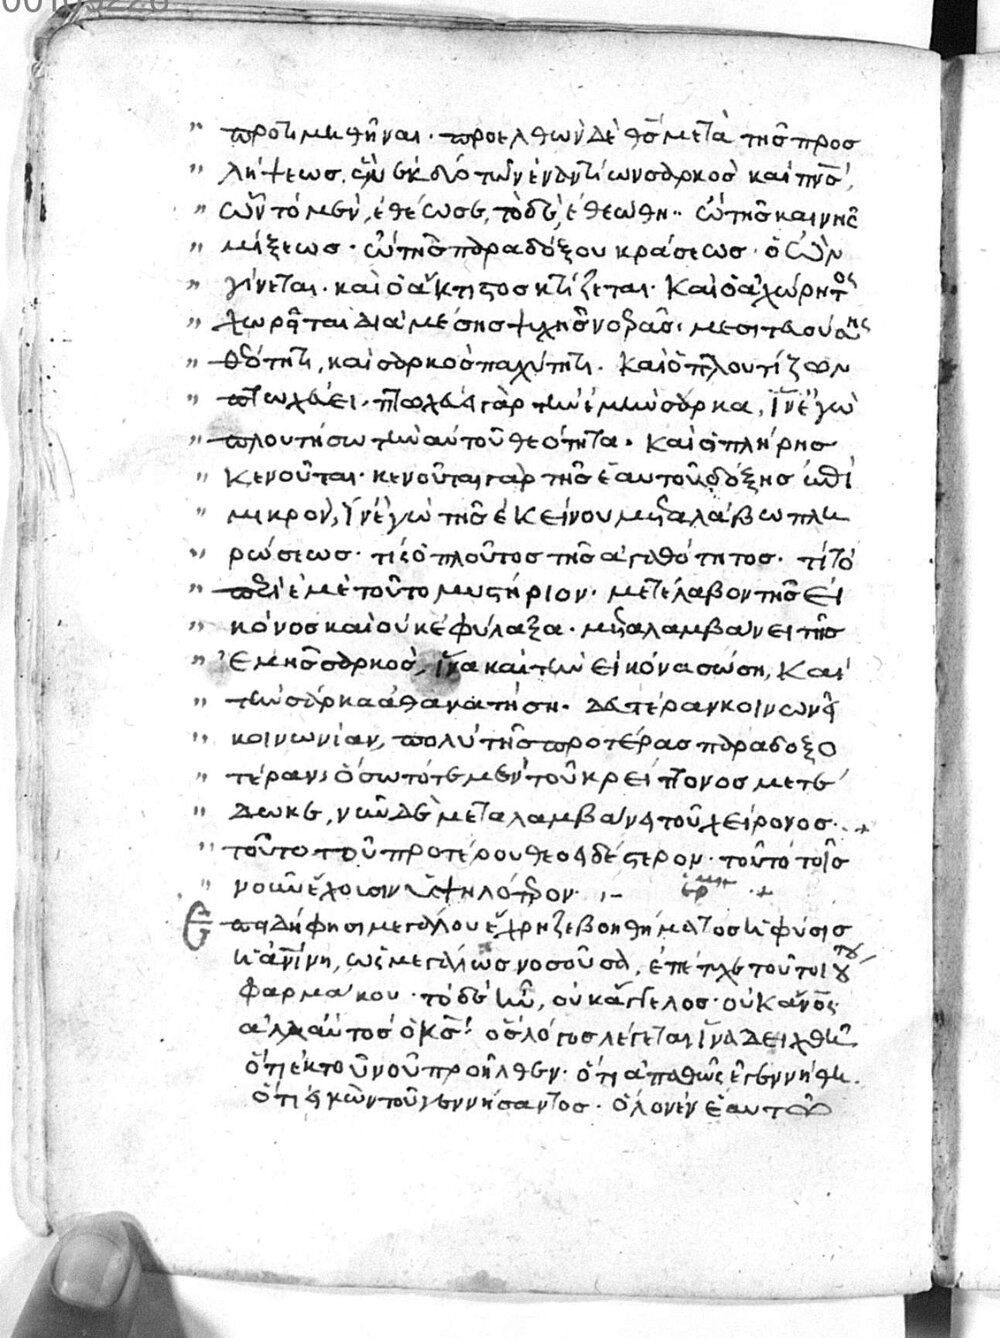 00105226
" προτιμηθῆναι· προελθὼν δὲ θς̅ μετὰ τῆς προσ
" λήψεως, ἓν ἐκ δύο τῶν ἐναντίων σαρκὸς καὶ πνς̅,
" ὧν τὸ μὲν, ἐθέωσε, τὸ δὲ, ἐθεώθη·· ὢ τῆς καινῆς
" μίξεως· ὢ τῆς παραδόξου κράσεως· ὁ ὢν
" γίνεται· καὶ ὁ ἄκτιστος κτίζεται· καὶ ὁ ἀχώρητος
" χωρεῖται διὰ μέσης ψυχῆς νοερᾶς μεσιτευούσης
" θεότητι, καὶ σαρκὸς παχύτητι. καὶ ὁ πλουτίζων
" πτωχεύει· πτωχεύει γὰρ τὴν ἐμὴν σάρκα, ἵν' ἐγὼ
" πλουτήσω τὴν αὐτοῦ θεότητα· καὶ ὁ πλήρης
" κενοῦται· κενοῦται γὰρ τῆς ἑαυτοῦ δόξης ἐπὶ
" μικρὸν, ἵν' ἐγὼ τῆς ἐκείνου μεταλάβω πλη
" ρώσεως· τίς ὁ πλοῦτος τῆς ἀγαθότητος· τί τὸ
" περὶ ἐμὲ τοῦτο μυστήριον· μετέλαβον τῆς εἰ
" κόνος καὶ οὐκ ἐφύλαξα· μεταλαμβάνει τῆς
" ἐμῆς σαρκὸς, ἵνα καὶ τὴν εἰκόνα σώσῃ, καὶ
" τὴν σάρκα ἀθανατίσῃ· δευτέραν κοινωνεῖ
" κοινωνίαν, πολὺ τῆς προτέρας παραδοξο
" τέραν· ὅσω τότε μὲν τοῦ κρείττονος μετέ
" δωκε, νῦν δὲ μεταλαμβάνει τοῦ χείρονος· +
" τοῦτο τοῦ προτέρου θεοειδέστερον· τοῦτο τοῖς
" νοῦν ἔχουσιν ὑψηλότερον· ,– ἑρμη ·+
Ἐπειδή φησι μεγάλου ἔχρηζε βοηθήματος ἡ φύσις
ἡ ἀνίνη, ὡς μεγάλως νοσοῦσα, ἐπέτυχε τοῦ τοιούτου
φαρμάκου· τὸ δὲ ἦν, οὐκ ἄγγελος· οὐκ ἄνος̅·
ἀλλ' αὐτὸς ὁ κς̅· ὃς λόγος λέγεται ἵνα δειχθῆ
ὅτι ἐκ τοῦ νοῦ προῆλθεν· ὅτι ἀπαθῶς ἐγεννήθη.
ὅτι εἰκὼν τοῦ γεννήσαντος· ὅλον ἐν ἑαυτῶ